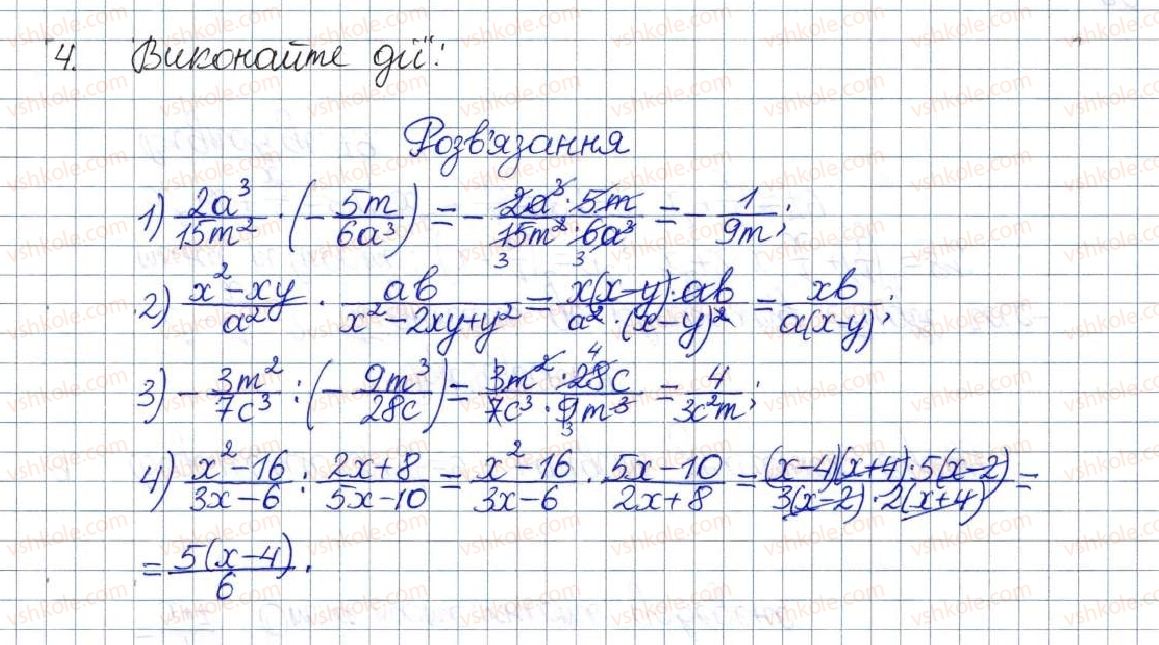 4. Виконайте дії:
Розв'язання
1) \frac{2a^3}{15m^2} · (-\frac{5m}{6a^3}) = -\frac{2a^3 · 5m}{15m^2 · 6a^3} = -\frac{1}{9m};
2) \frac{x^2-xy}{a^2} · \frac{ab}{x^2-2xy+y^2} = \frac{x(x-y) · ab}{a^2 · (x-y)^2} = \frac{xb}{a(x-y)};
3) -\frac{3m^2}{7c^3} : (-\frac{9m^3}{28c}) = \frac{3m^2 · 28c}{7c^3 · 9m^3} = \frac{4}{3c^2m};
4) \frac{x^2-16}{3x-6} : \frac{2x+8}{5x-10} = \frac{x^2-16}{3x-6} · \frac{5x-10}{2x+8} = \frac{(x-4)(x+4) · 5(x-2)}{3(x-2) · 2(x+4)} =
= \frac{5(x-4)}{6}.